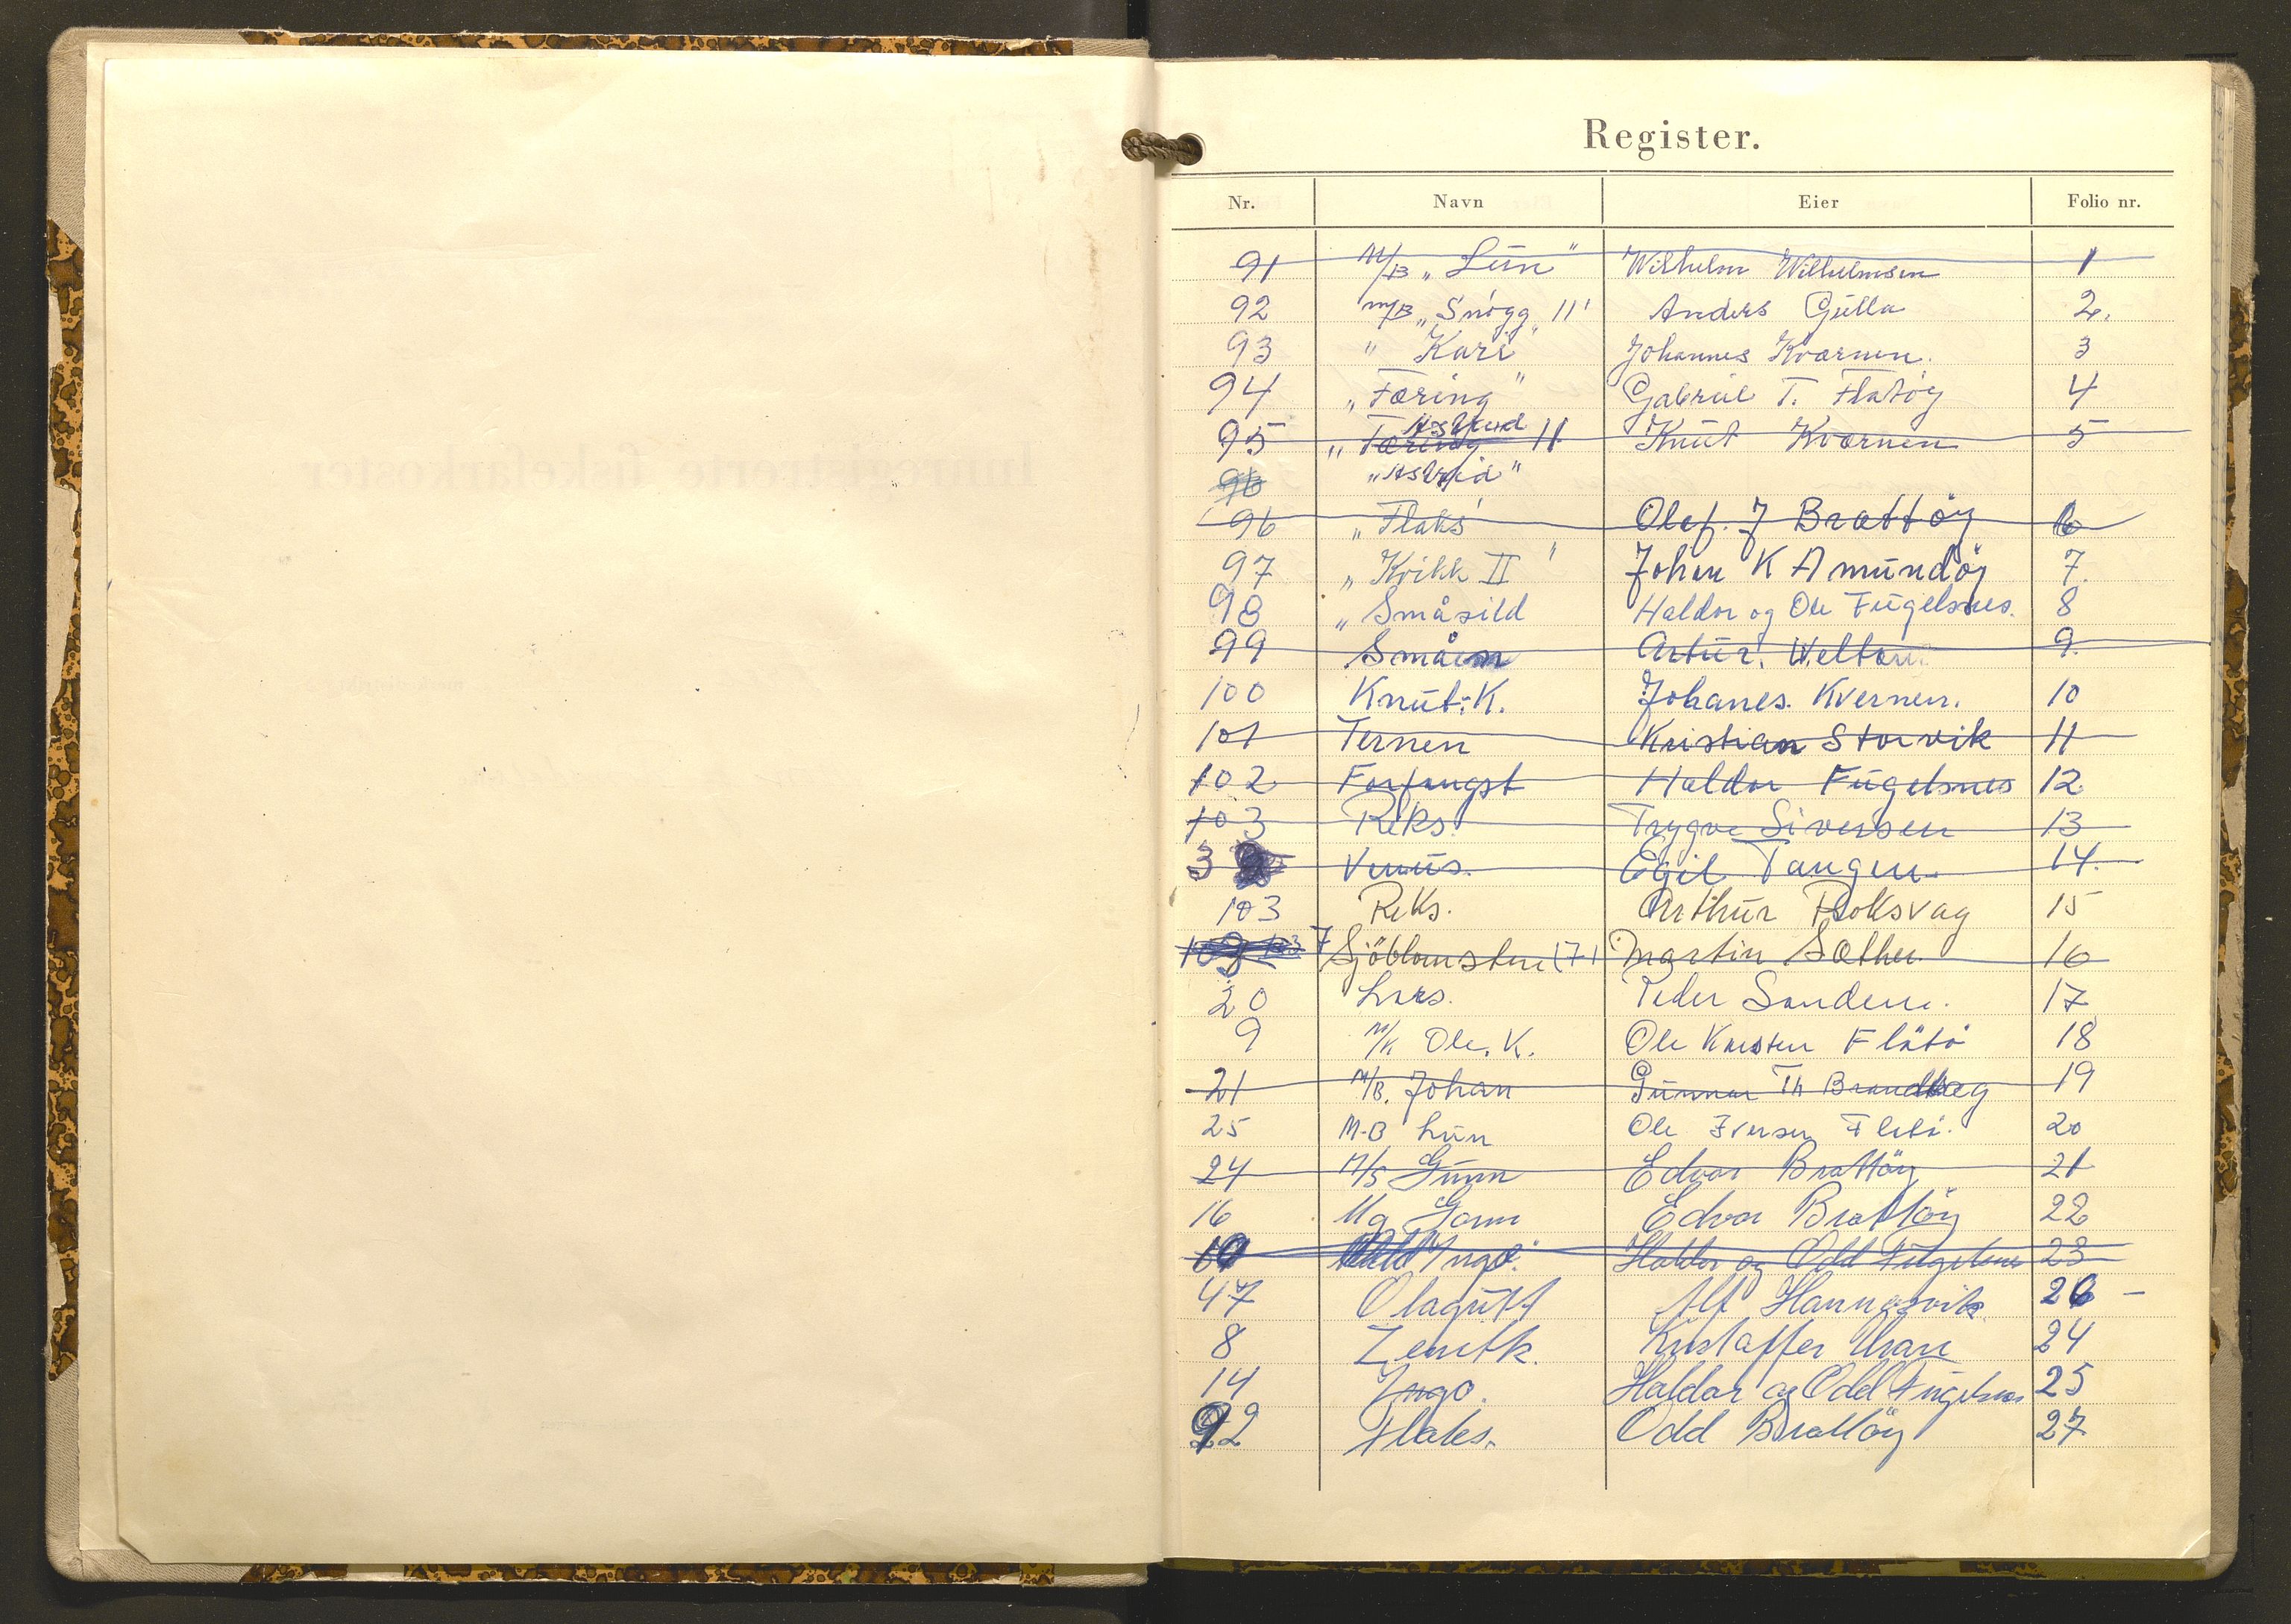 Register.
Nr. Navn Eier Folio nr.
91 M/B „Lün" Wilhelm Wilhelmsen 1
92 m/B „Snögg II" Anders Gülla 2.
93 " Kari" Johannes Kvarnen. 3
94 „Færing" Gabriel T. Flatöy 4
95 „Færing II Knüt Kvarnen 5
96 „Astrid"
96 „Flaks" Olaf. J Brattöy 6
97 „Kvikk II" Johan K Amündöy 7.
98 „Småsild Haldor og Ole Fügelsnes. 8
99 Småen Artür. Weltan. 9.
100 Knüt. K. Johanes. Kvernen. 10
101 Ternen Kristian Storvik 11
102 Forfangst Haldor Fügelsnes 12
103 Reks. Trygve Siversen 13
3 Venüs. Egil Tangen 14.
103 Reks. Arthür Roksvag 15
7 Sjöblomsten (7) Martin Sæther 16
20 Lars. Peder Sandem. 17
9 M/K Ole. K. Ole Karsten Flätö 18
21 M/B. Johan Günnar Th 19
25 M-B Lün Ole Iversen Flätö. 20
24 M/S Günn Edvar Brattöy 21
16 Edvar Brattöy 22
Ingo. Haldor og Odd Fügelsnes 23
47 Olagütt Alf 26 -
8 Kristoffer 24
14 Ingo. Haldor og Odd Fügelsnes 25
92 Flaks. Odd Brattöy 27